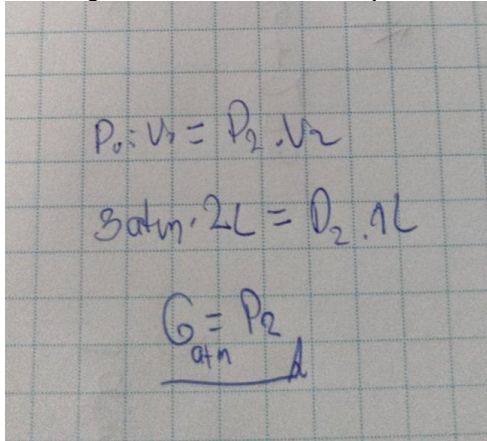 P₁·V₁ = P₂·V₂
3atm·2L = P₂·1L
6 atm = P₂